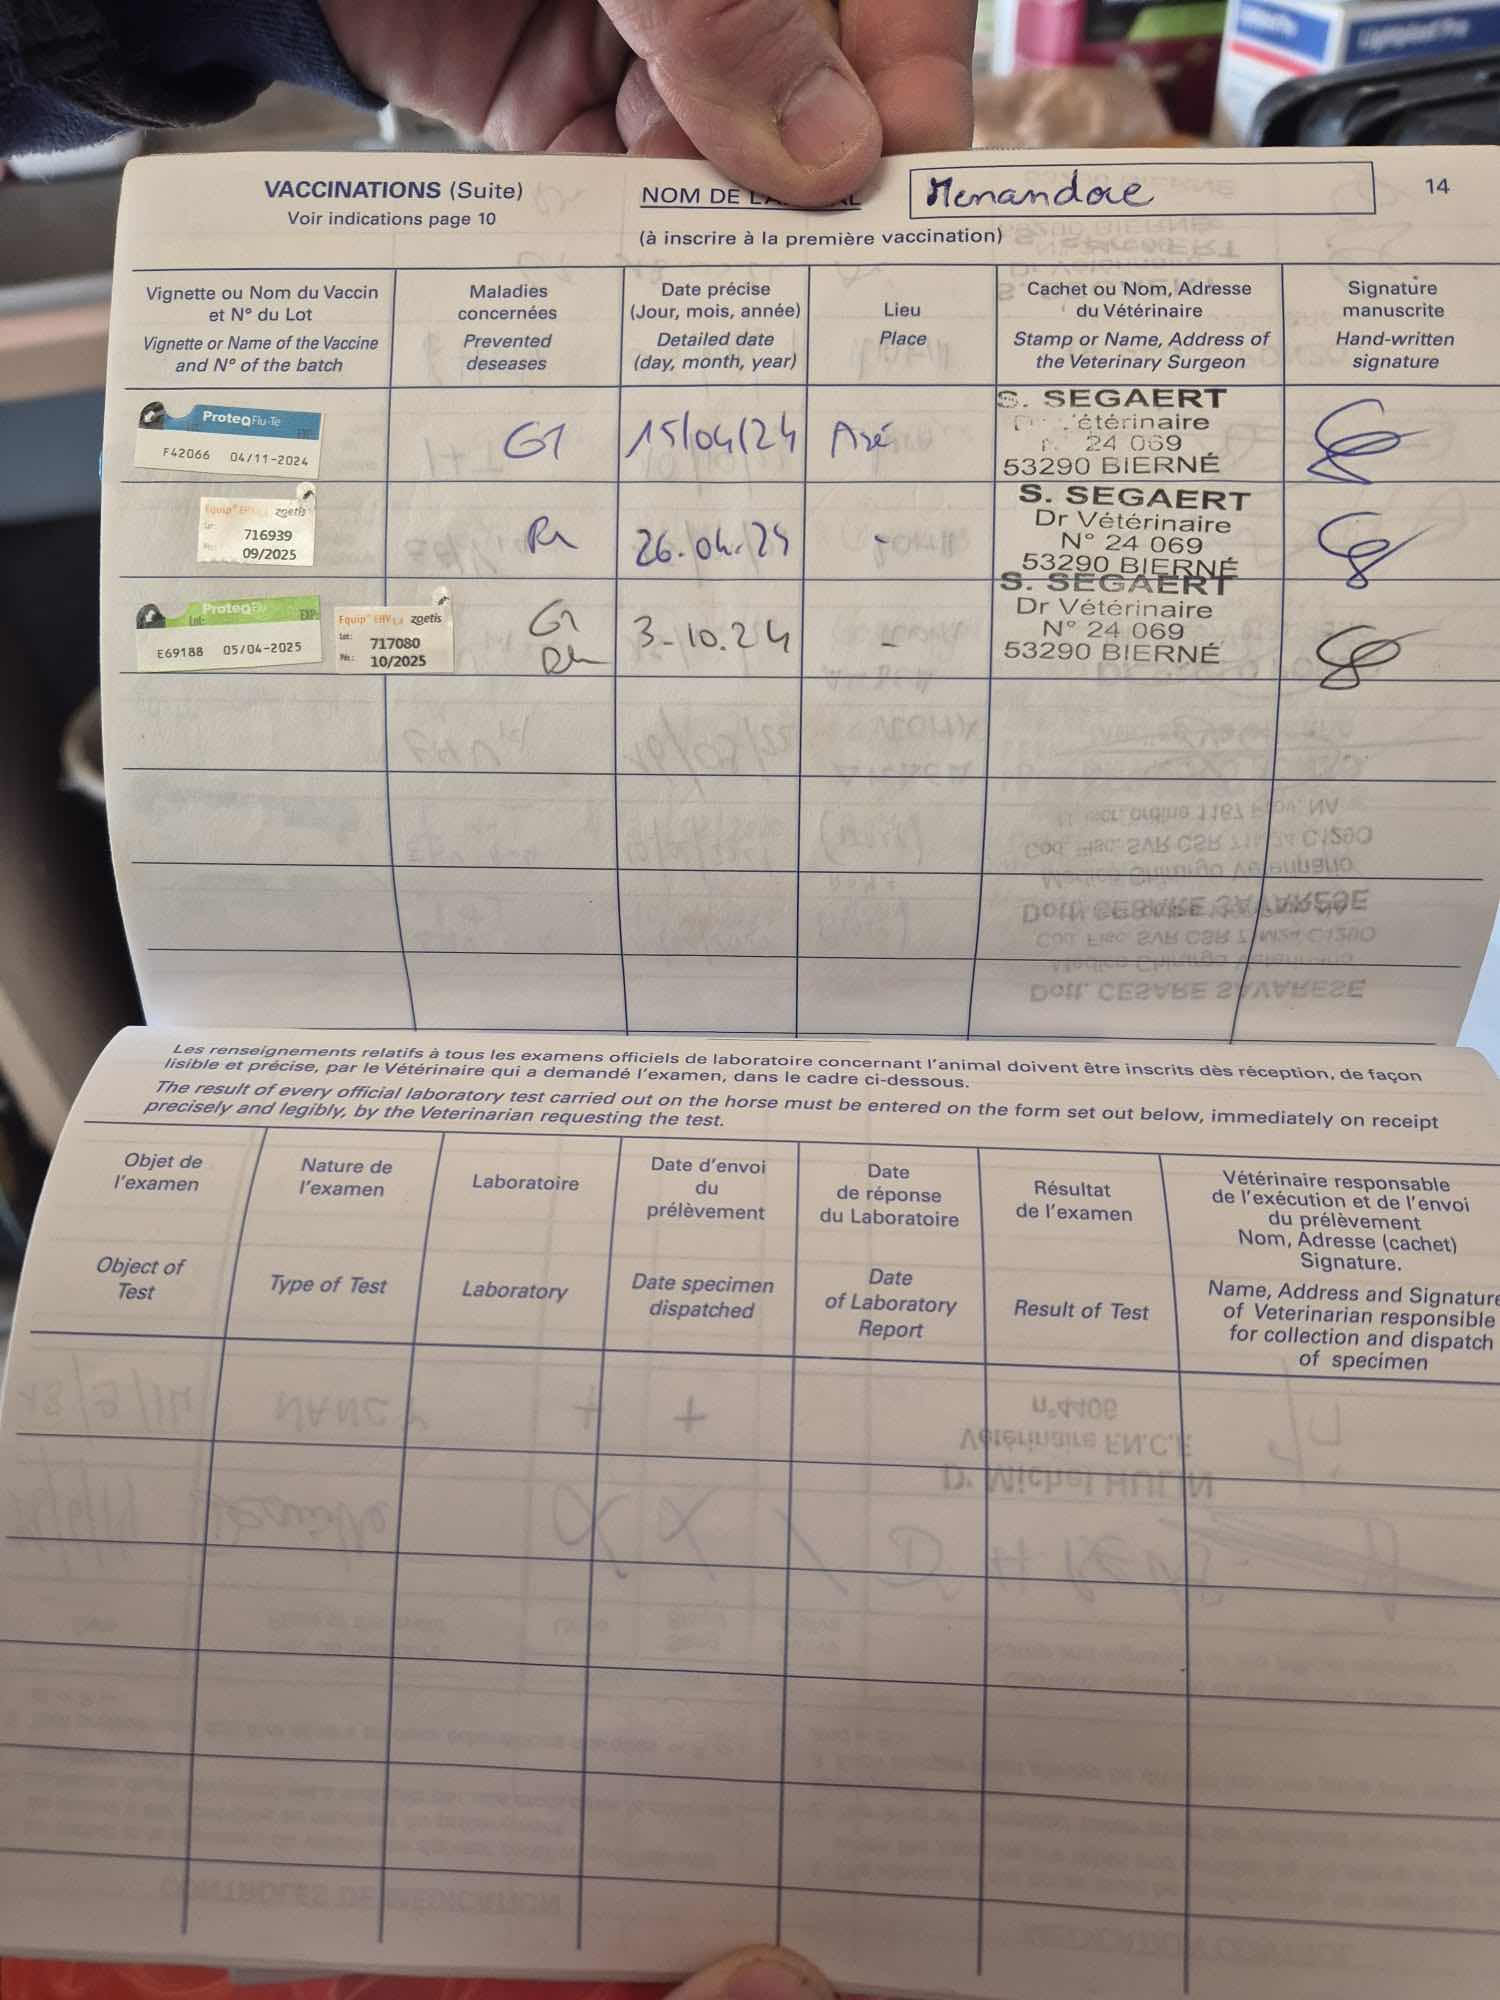 VACCINATIONS (Suite)
Voir indications page 10
NOM DE L'
Menandore
14
(à inscrire à la première vaccination)
Vignette ou Nom du Vaccin
et N° du Lot
Vignette or Name of the Vaccine
and N° of the batch
Maladies
concernées
Prevented
deseases
Date précise
(Jour, mois, année)
Detailed date
(day, month, year)
Lieu
Place
Cachet ou Nom, Adresse
du Vétérinaire
Stamp or Name, Address of
the Veterinary Surgeon
Signature
manuscrite
Hand-written
signature
ProteqFlu-Te
F42066 04/11-2024
GT
15/04/24
Azé
S. SEGAERT
Vétérinaire
24 069
53290 BIERNÉ
Equip EHV1,4 zoetis
Lot:
716939
09/2025
Rh
26.04.24
-
S. SEGAERT
Dr Vétérinaire
N° 24 069
53290 BIERNÉ
ProteqFlu
Lot: EXP:
E69188 05/04-2025
Equip EHV1,4 zoetis
Lot:
717080
10/2025
G
Rh
3-10.24
-
S. SEGAERT
Dr Vétérinaire
N° 24 069
53290 BIERNÉ
Les renseignements relatifs à tous les examens officiels de laboratoire concernant l'animal doivent être inscrits dès réception, de façon
lisible et précise, par le Vétérinaire qui a demandé l'examen, dans le cadre ci-dessous.
The result of every official laboratory test carried out on the horse must be entered on the form set out below, immediately on receipt
precisely and legibly, by the Veterinarian requesting the test.
Objet de
l'examen
Object of
Test
Nature de
l'examen
Type of Test
Laboratoire
Laboratory
Date d'envoi
du
prélèvement
Date specimen
dispatched
Date
de réponse
du Laboratoire
Date
of Laboratory
Report
Résultat
de l'examen
Result of Test
Vétérinaire responsable
de l'exécution et de l'envoi
du prélèvement
Nom, Adresse (cachet)
Signature.
Name, Address and Signature
of Veterinarian responsible
for collection and dispatch
of specimen